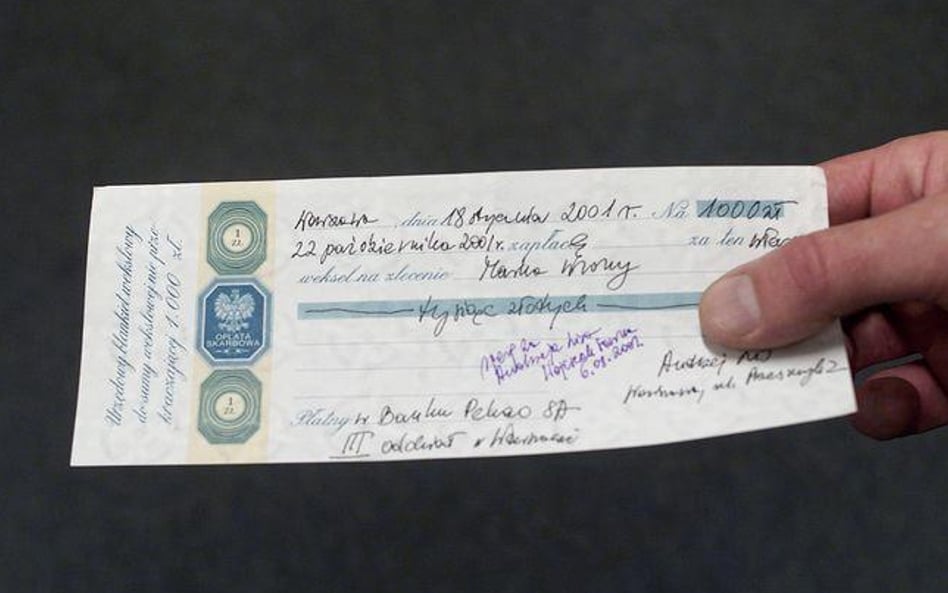 Urzędowy blankiet wekslowy
do sumy wekslowej nie prze-
kraczającej 1.000 zł.
1
ZŁ
OPŁATA
SKARBOWA
1
ZŁ
Warszawa, dnia 18 stycznia 2001 r. Na 1000 zł
22 października 2001r. zapłacę za ten własny
weksel na zlecenie Marka Wrony
tysiąc złotych
6.03.2001
Andrzej
Warszawa, ul. 2
Płatny w Banku Pekao SA
III oddział w Warszawie